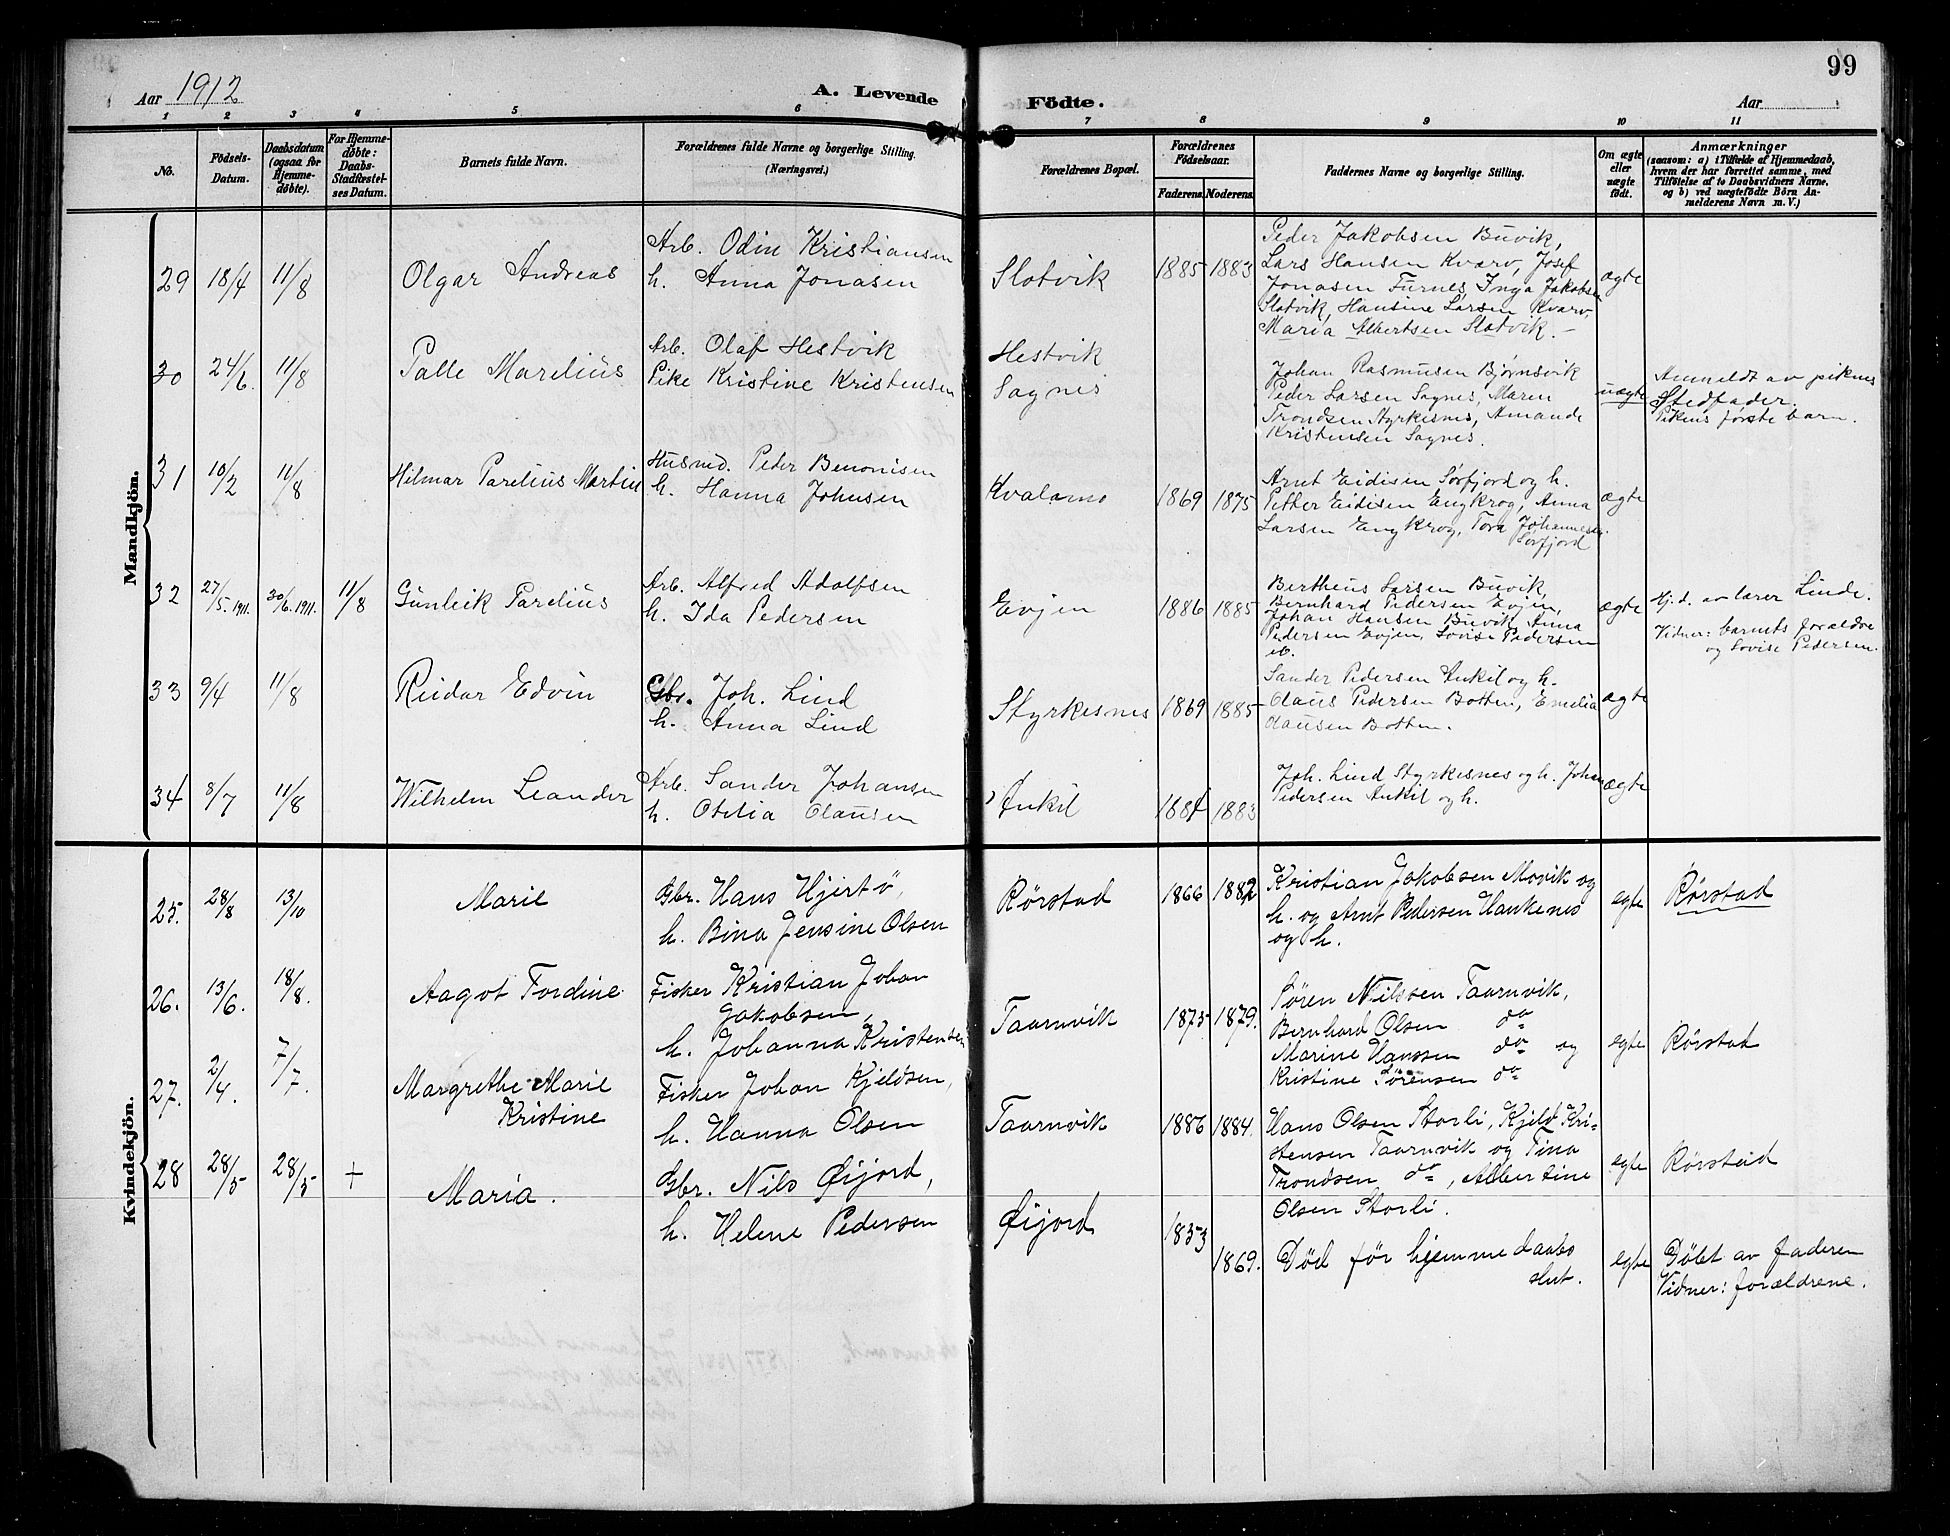 99
Aar 1912
A. Levende Födte.
Aar
1 2 3 4 5 6 7 8 9 10 11
No.
Födsels-
Datum.
Daabsdatum
(ogsaa for
Hjemme-
döbte).
For Hjemme-
döbte:
Daabs-
Stadfæstel-
ses Datum.
Barnets fulde Navn.
Forældrenes fulde Navne og borgerlige Stilling.
(Næringsvei.)
Forældrenes Bopæl.
Forældrenes
Födselsaar.
Faderens. Moderens.
Faddernes Navne og borgerlige Stilling.
Om ægte
eller
uægte
födt.
Anmærkninger
(saasom: a) i Tilfælde af Hjemmedaab,
hvem der har forrettet samme, med
Tilföielse af to Daabsvidners Navne,
og b) ved uægtefödte Börn An-
melderens Navn m. V.)
Mandkjön.
29 18/4 11/8 Olgar Andreas
Arb. Odin Kristiansen
h. Anna Jonasen
Slotvik 1885 1883
Peder Jakobsen Buvik,
Lars Hansen Kvarv, Josef
Jonasen Furnes, Inga Jakobsen
Slotvik, Hansine Larsen Kvarv,
Maria Albertsen Slotvik. –
ægte
30 24/6. 11/8 Palle Marelius
Arb. Olaf Hestvik
Pike Kristine Kristensen
Hestvik
Sagnes
Johan Rasmusen Bjørnsvik
Peder Larsen Sagnes, Maren
Trondsen Styrkesnes, Amande
Kristensen Sagnes.
uægte
Anmeldt av pikens
Stedfader.
Pikens første barn.
31 10/2 11/8 Hilmar Parelius Martin
Husmd. Peder Benonisen
h. Hanna Johnsen
Kvalamo 1869 1875
Arnt Eidisen Sørfjord og h.
Petter Eidisen Engkrog, Anna
Larsen Engkrog, Tora Johannesen
Sørfjord
ægte
32 27/5. 1911. 30/6. 1911. 11/8 Gunleik Parelius
Arb. Alfred Adolfsen
h. Ida Pedersen
Evjen 1886 1885
Bertheus Larsen Buvik,
Bernhard Pedersen Evjen,
Johan Hansen Buvik, Anna
Pedersen Evjen, Lovise Pedersen
ib.
ægte
Hj. d. av lærer Linde.
Vidner: barnets forældre
og Lovise Pedersen.
33 9/4 11/8 Reidar Edvin
Gbr. Joh. Lind
h. Anna Lind
Styrkesnes 1869 1885
Sander Pedersen Ankil og h.
Claus Pedersen Botten, Emelia
Clausen Botten.
ægte
34 8/7 11/8 Wilhelm Leander
Arb. Sander Johansen
h. Otelia Clausen
Ankil 1884 1883
Joh. Lind Styrkesnes og h. Johan
Pedersen Ankil og h.
ægte
Kvindekjön.
25. 28/8 13/10 Marie
Gbr. Hans Hjertø,
h. Bina Jensine Olsen
Rørstad 1866 1882
Kristian Jakobsen Movik og
h. og Arnt Pedersen Haukenes
og h.
egte Rørstad
26. 13/6. 18/8. Aagot Tordine
Fisker Kristian Johan
Jakobsen,
h. Johanna Kristensen
Taarnvik 1875 1879.
Søren Nilssen Taarnvik,
Bernhard Olsen do
Marine Hanssen do og
Kristine Sørensen do
egte Rørstad
27. 2/4. 7/7. Margrethe Marie
Kristine
Fisker Johan Kjeldsen,
h. Hanna Olsen
Taarnvik 1886 1884.
Hans Olsen Storli, Kjeld Kri-
stensen Taarnvik og Tina
Trondsen do, Albertine
Olsen Storli.
egte Rørstad
28 28/5 28/5 + Maria.
Gbr. Nils Øijord,
h. Helene Pedersen
Øijord 1853 1869.
Død før hjemmedaabs
slut.
egte
Døbt av faderen
Vidner: forældrene.